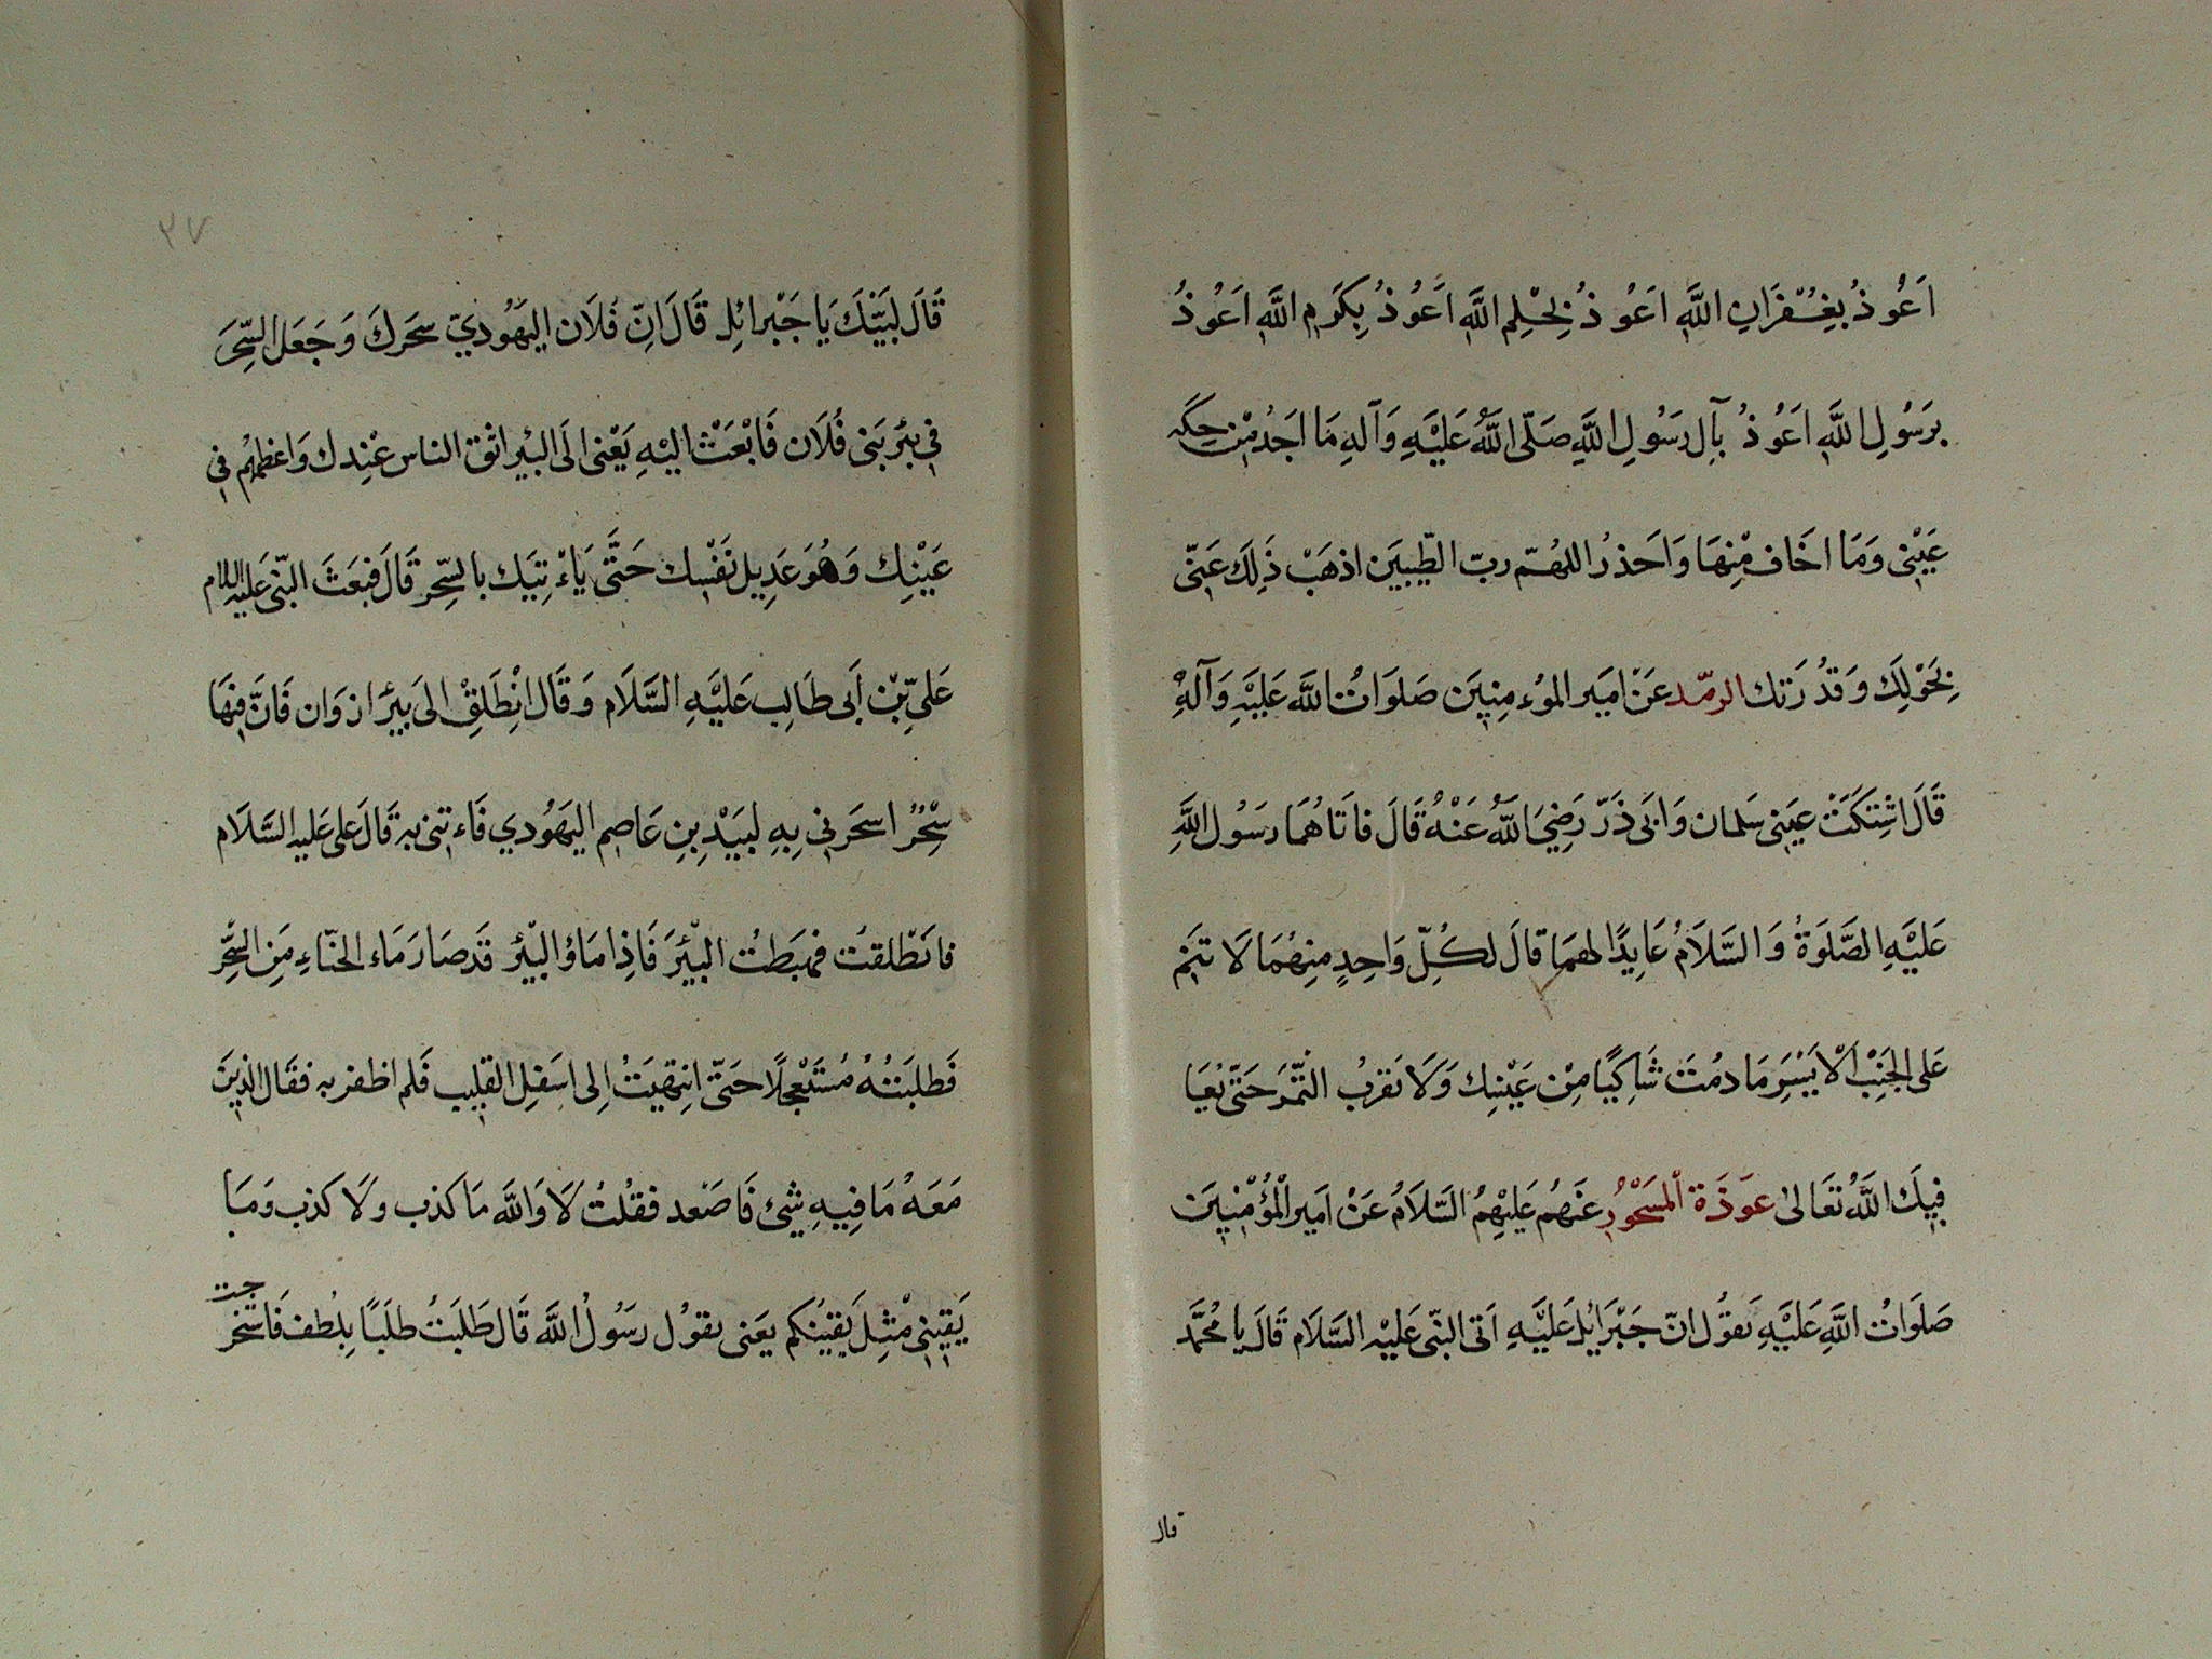 اَعُوذُ بِغُفْرَانِ اللَّهِ اَعُوذُ بِحْلِمِ اللَّهِ اَعُوذُ بِكَرَمِ اللَّهِ اَعُوذُ
بِرَسُولِ اللَّهِ اَعُوذُ بِآلِ رَسُولِ اللَّهِ صَلّى اللَّهُ عَلَيْهِ وَآلِهِ مَا اَجِدُ مِنْ حِكّه
عَيْنِى وَمَا اخَاف مِنْهَا وَاَحَذرُ اللهُمّ ربّ الطِّيبَين اذهَبْ ذَلِكَ عَنّى
بِحَوْلِكَ وَقدُرَتك الرمّد عَنْ امَير الموُءمِنِينَ صَلَوَاتُ اللَّه عَلَيْهِ وَآلَهِ
قَالَ اشْتِكَتْ عيَنى سَلمان وَابَى ذَرّ رَضِيَ اللَّهُ عَنْهُ قَالَ فاتَاهُمَا رسَوُل اللَّهِ
عَلَيْهِ الصَّلَوَةُ وَالسَّلاَمُ عَايِدًا لهمَا قالَ لكُلِّ وَاحِدٍ مِنهُمَا لاَ تَنَم
عَلى الجَنِبْ الاْيَسَرِ مَا دمُتَ شَاكِيًا مِنْ عَيْنِك وَلاَ تَقربُ التمَّرَ حَتىّ يُعَا
فِيكَ اللَّهُ تَعَالىٰ عوَذَة اْلمَسْحُورِ عَنهُم عَلَيْهِمُ السَّلاَمُ عَنْ امَيرالْمُؤْمِنِينَ
صَلَوَاتُ اللَّهِ عَلَيْهِ يَقوُل انّ جَبْرَائيلَ عَلَيْهِ اَتى النبّى عَليْه السَّلاَم قَالَ يا مُحَمَّد
قال
٣٧
قَالَ لَبَيّكَ يَا جَبْرائيِل قَالَ اِنّ فَلاَن اليهَوُديّ سحَرك وَجَعَل السِّحَر
فى بئَر بَنى فُلاَن فَابْعَثْ اليْهِ يَعْنى الَى البْير اثق الناس عْنِدك وَاعظمُهُم فى
عَيْنِك وَهُوَ عَدِيل نَفْسِك حَتَّى يَاءْتِيَك بالسِّحِر قَالَ فَبعَثَ النبّى عَليه السلام
عَلىّ بْن اَبى طَالِب عَلَيْهِ السَّلاَم وَقَال انْطَلِقْ الىَ بيَر ازوَان فَانَّ فيهَا
سِحْرٌ اسحَرنِى بِهِ لبيَدْ بِن عَاصِم اليهَوُدي فَاءتنِى به قَالَ على عَليه السَّلاَم
فانَطْلقتُ فهَبَطتُ البْئيَر فَاذِا مَاؤ البْئيرِ قَد صَارَ مَاء الحنّاءِ مِنَ السِّحْرِ
فَطلبَتهُ مُستَعْجِلاً حَتىّ انِتهَيتُ اِلى اسَفلِ القلِيِب فَلم اظفر به فقَال الذِينَ
مَعَهُ مَا فِيهِ شَىْئ فَاصَعْد فقُلتُ لاَ وَاللَّه مَا كذب ولاَ كذب وَمَا
يَقينِى مْثِل يَقِينكُم يعَنى بقوُل رسَوُل اللَّه قَال طَلبَتُ طَلَبًا بِلُطف فَاسْتخر
جت